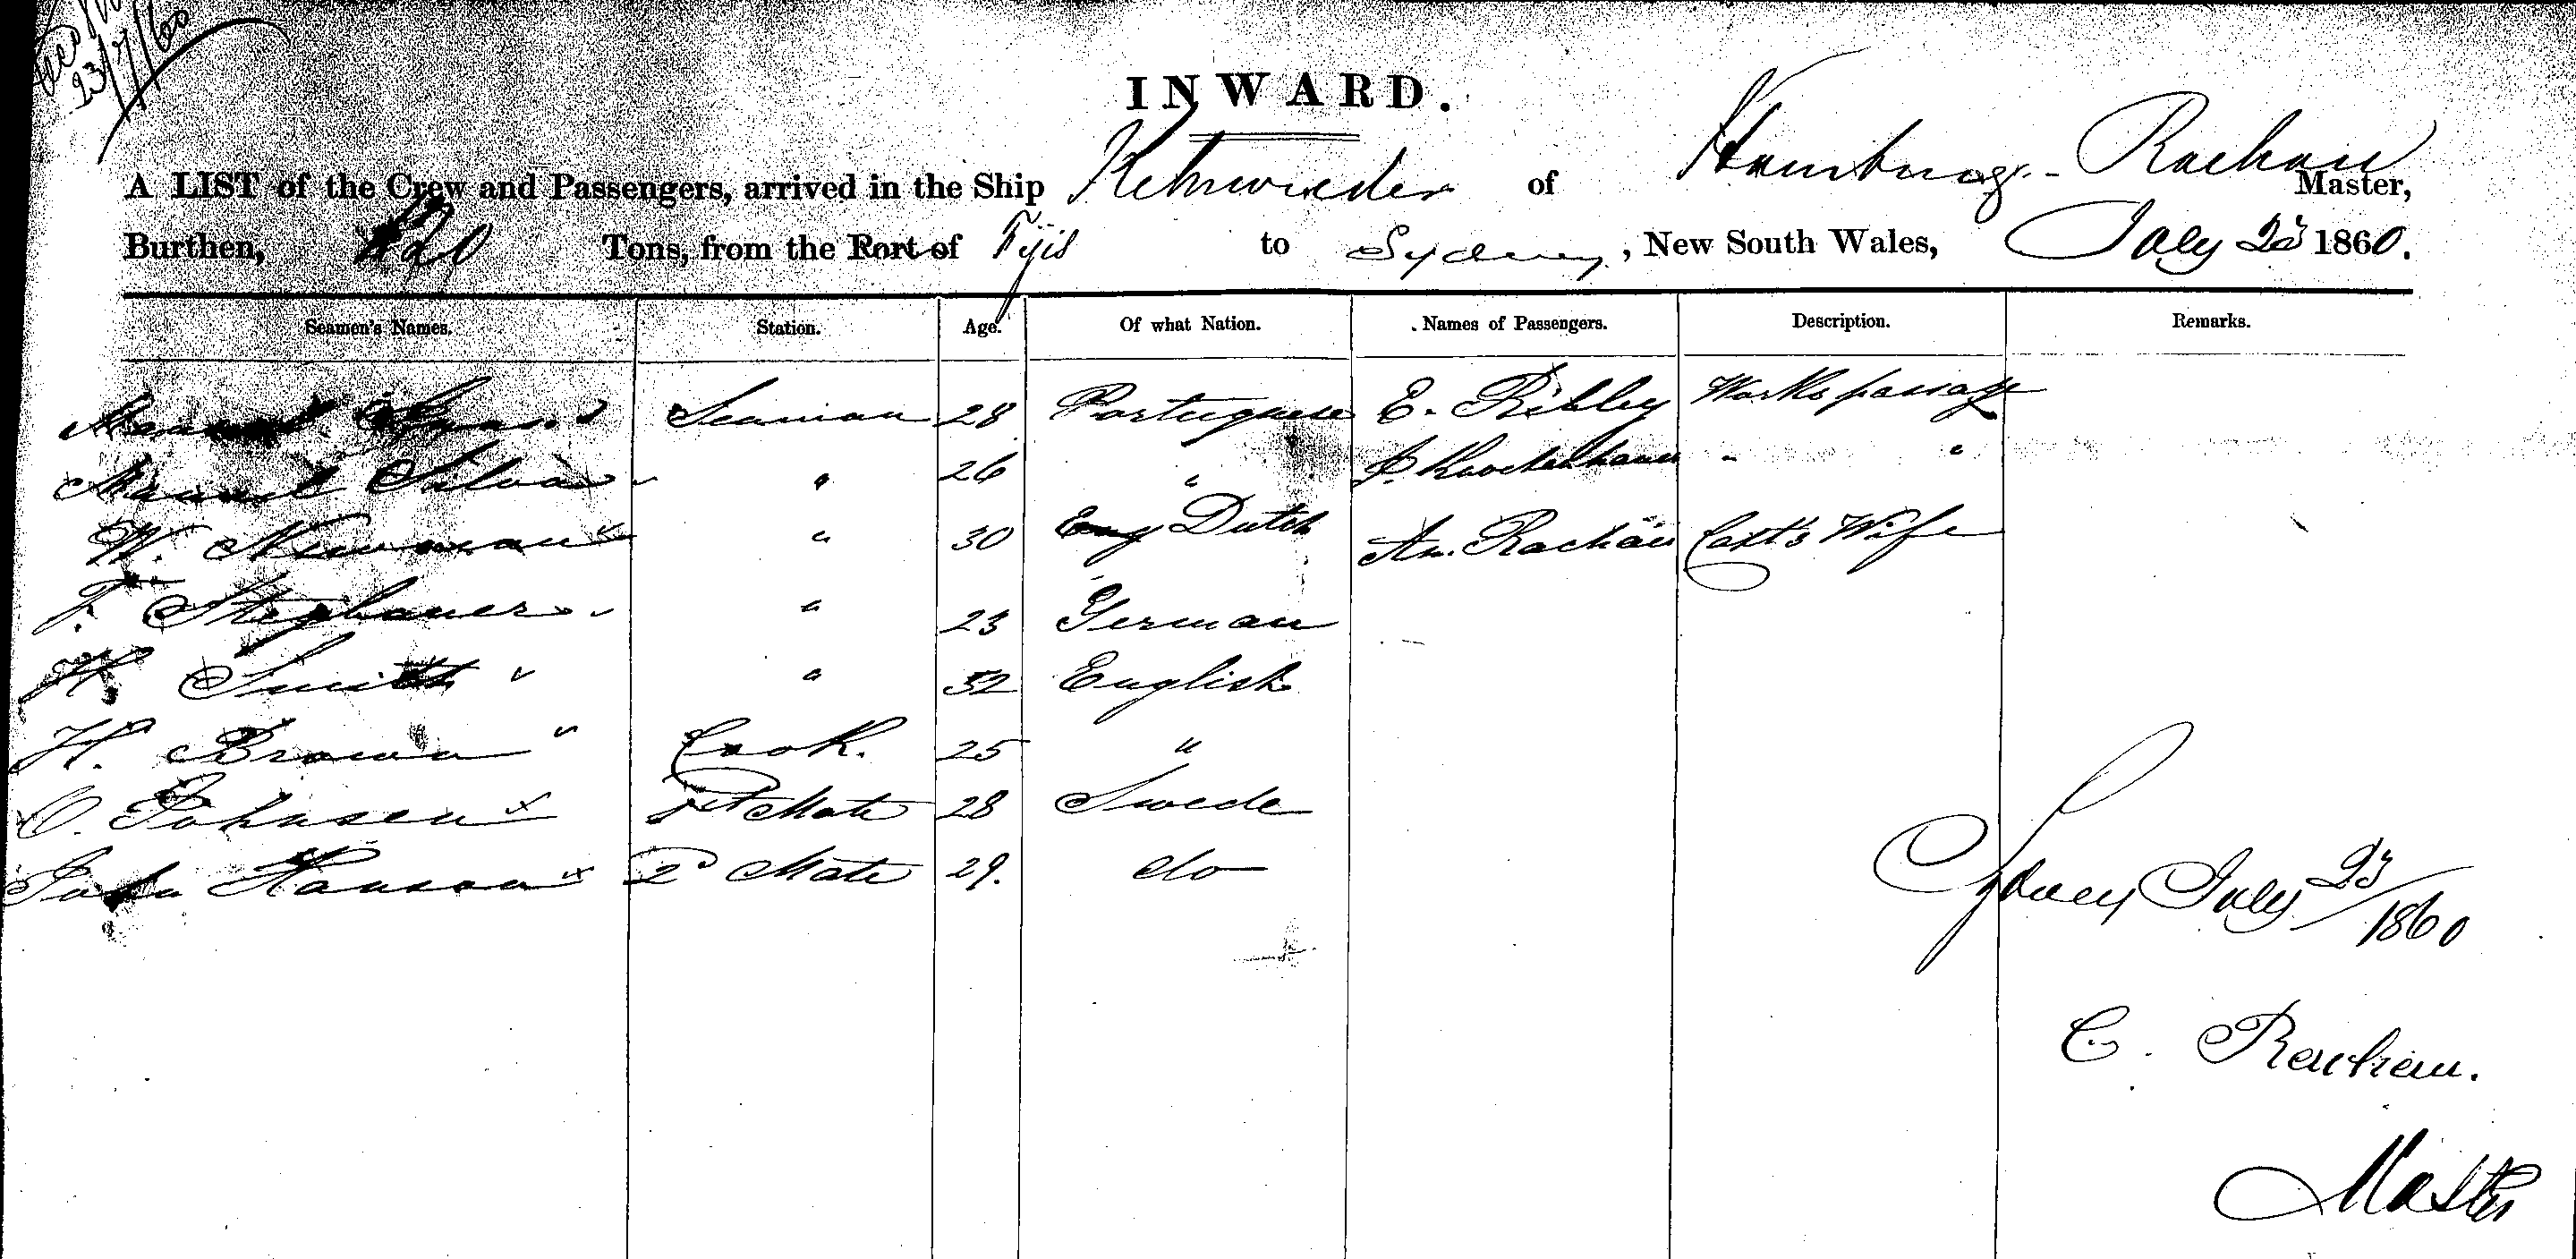 23/7/60
INWARD.
A LIST of the Crew and Passengers, arrived in the Ship Kehrwieder of Hamburg - Rachau Master,
Burthen, Tons, from the Port of Fijis to Sydney, New South Wales, July 23 1860.
Seamen's Names. Station. Age. Of what Nation. Names of Passengers. Description. Remarks.
Manuel Seaman 28 Portuguese E. Ribley Works passage
Manuel Silva " 26 " " "
W. Newman " 30 Eng Dutch An. Rachau Capt's Wife
F. " 23 German
H. Smith " 32 English
H. Brown Cook. 25 "
O. Johnsen 1st Mate 28 Swede
John Hanson 2d Mate 29. do
Sydney July 23/1860
C. Rachau.
Master